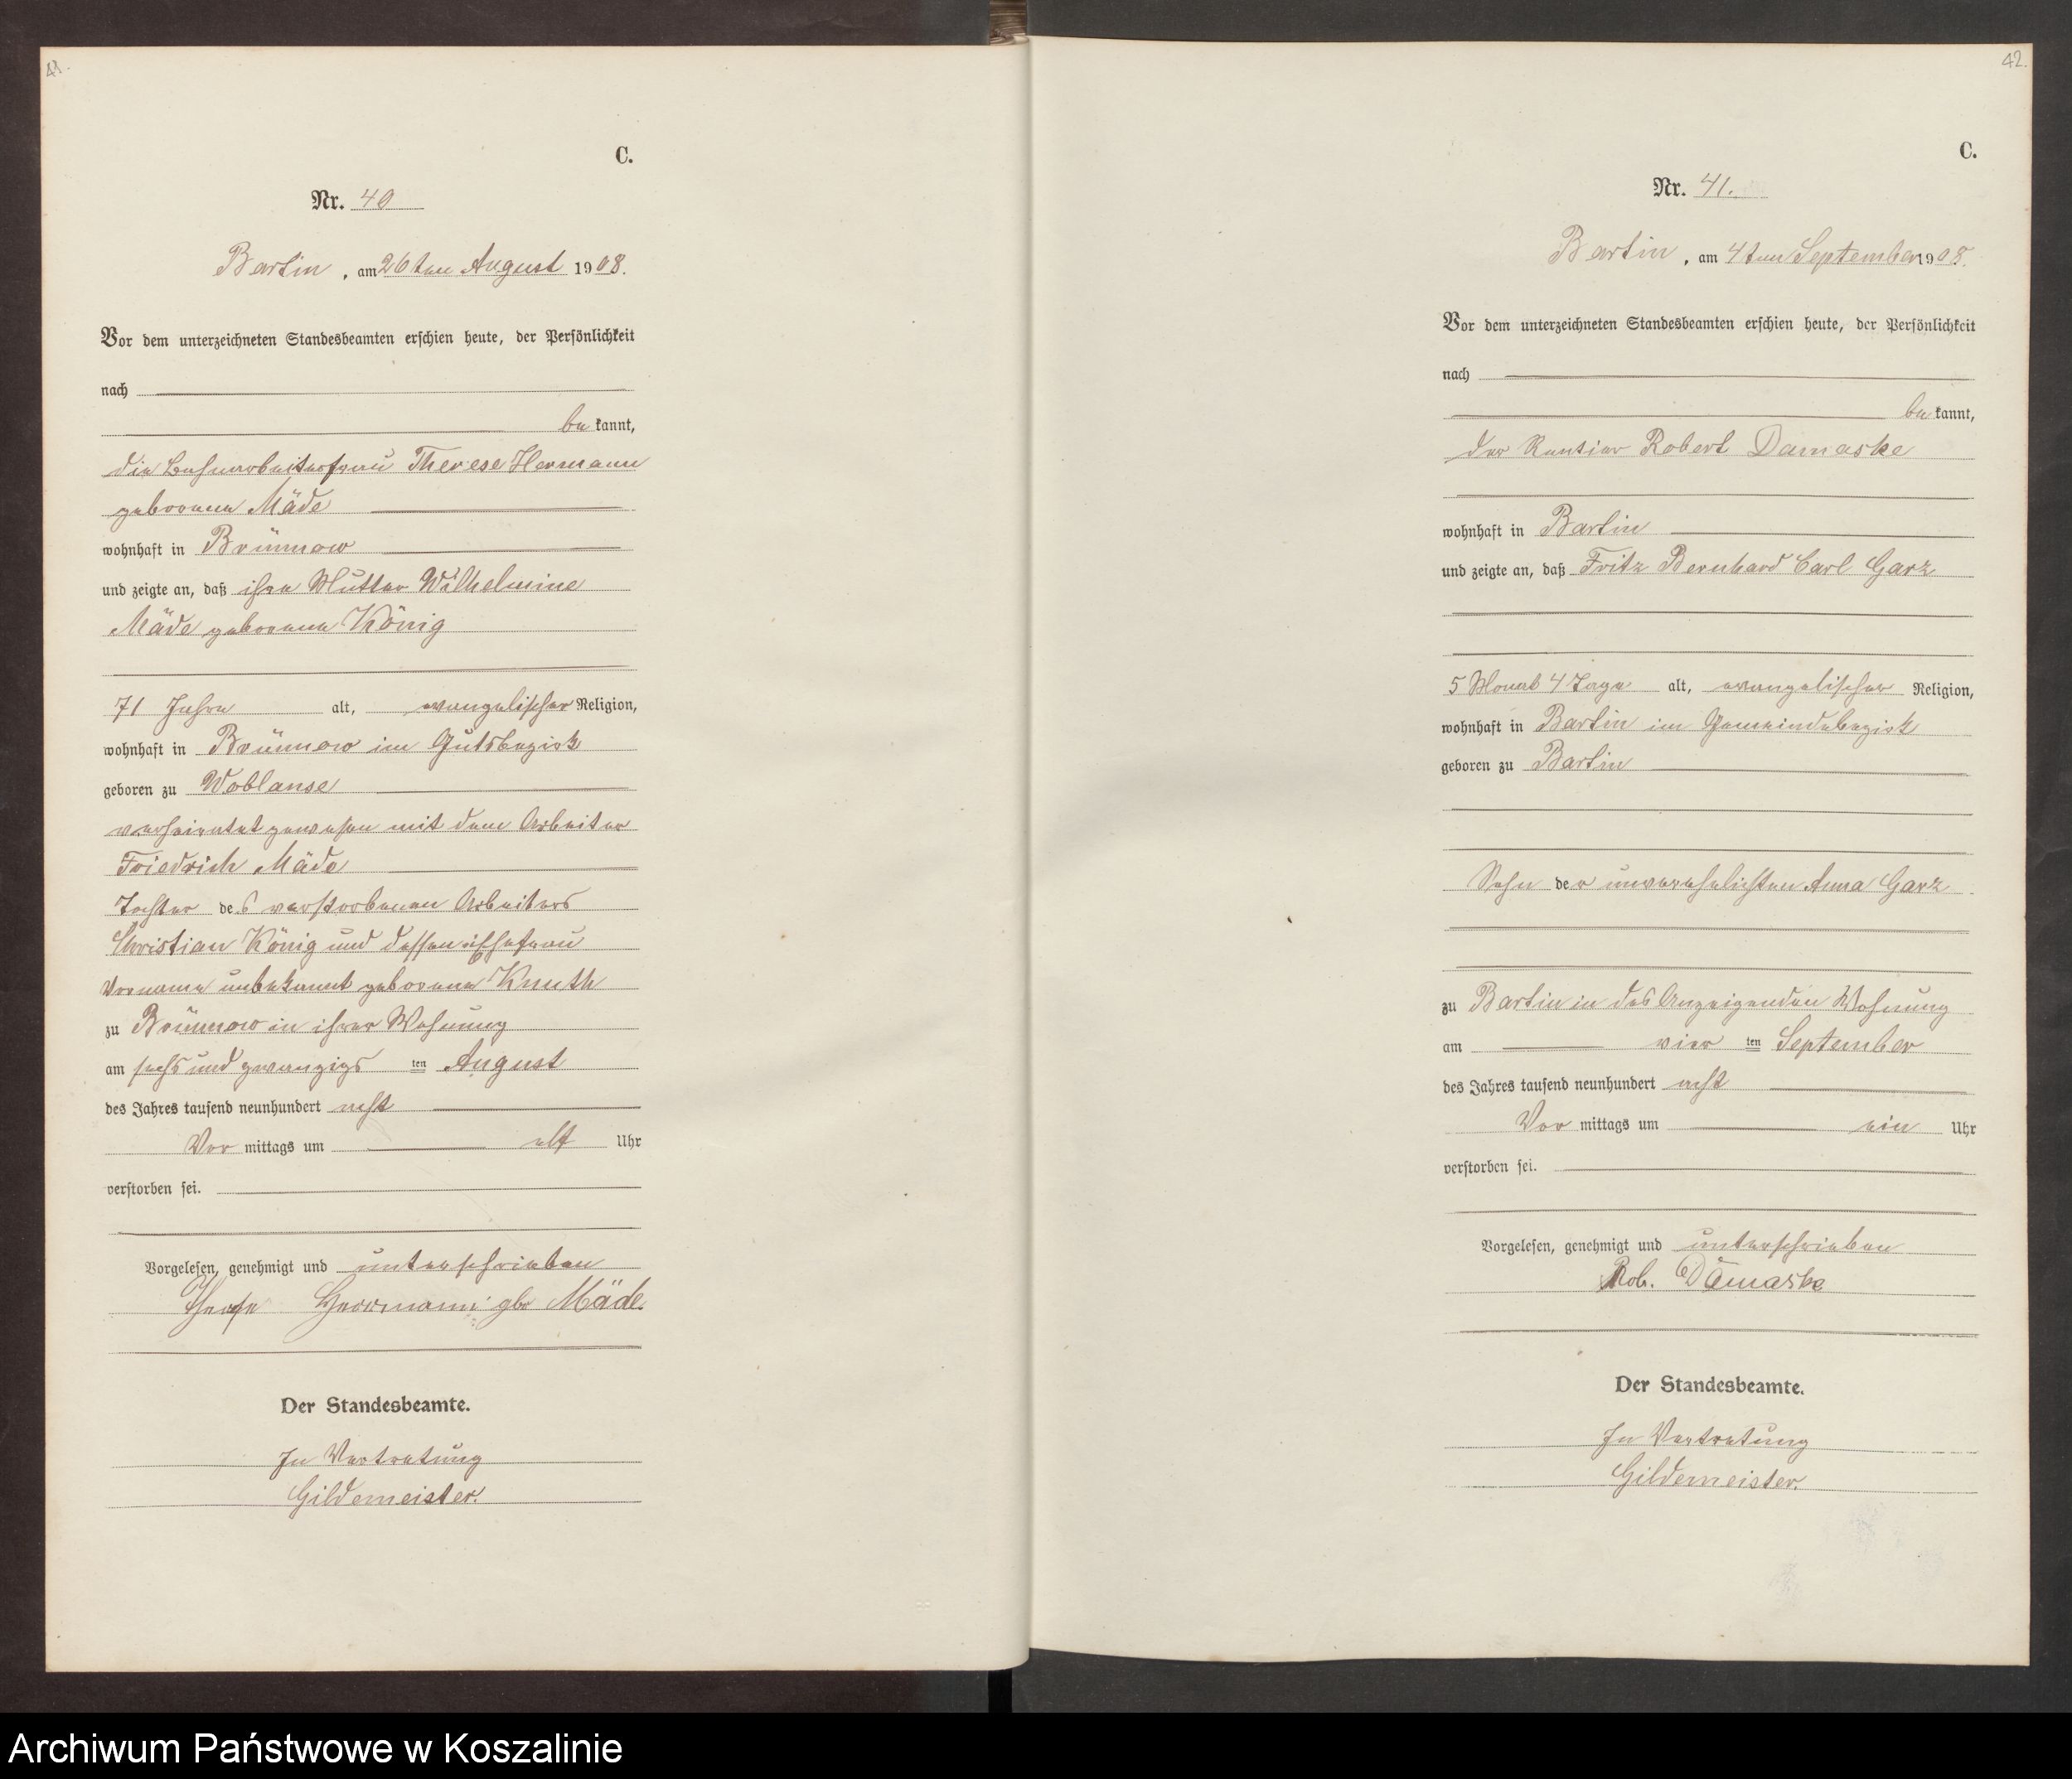 41.
C.
Nr. 40
Bartin, am 26ten August 1908.
Vor dem unterzeichneten Standesbeamten erschien heute, der Persönlichkeit
nach
be kannt,
die Bahnarbeiterfrau Therese Hermann
geborene Mäde
wohnhaft in Brünnow
und zeigte an, daß ihre Mutter Wilhelmine
Mäde geborene König
71 Jahre alt, evangelischer Religion,
wohnhaft in Brünnow im Gutsbezirk
geboren zu Woblanse
verheiratet gewesen mit dem Arbeiter
Friedrich Mäde
Tochter des verstorbenen Arbeiters
Christian König und dessen Ehefrau
Vorname unbekannt geborene Knuth
zu Brünnow in ihrer Wohnung
am sechs und zwanzigs ten August
des Jahres tausend neunhundert acht
Vor mittags um elf Uhr
verstorben sei.
Vorgelesen, genehmigt und unterschrieben
Herrmann gbr Mäde.
Der Standesbeamte.
In Vertretung
Gildemeister.
42.
C.
Nr. 41.
Bartin, am 4ten September 1908.
Vor dem unterzeichneten Standesbeamten erschien heute, der Persönlichkeit
nach
be kannt,
der Rentier Robert Damaske
wohnhaft in Bartin
und zeigte an, daß Fritz Bernhard Carl Garz
5 Monat 4 Tage alt, evangelischer Religion,
wohnhaft in Bartin im Gemeindebezirk
geboren zu Bartin
Sohn der unverehelichten Anna Garz
zu Bartin in des Anzeigenden Wohnung
am vier ten September
des Jahres tausend neunhundert acht
Vor mittags um ein Uhr
verstorben sei.
Vorgelesen, genehmigt und unterschrieben
Rob. Damaske
Der Standesbeamte.
In Vertretung
Gildemeister.
Archiwum Państwowe w Koszalinie